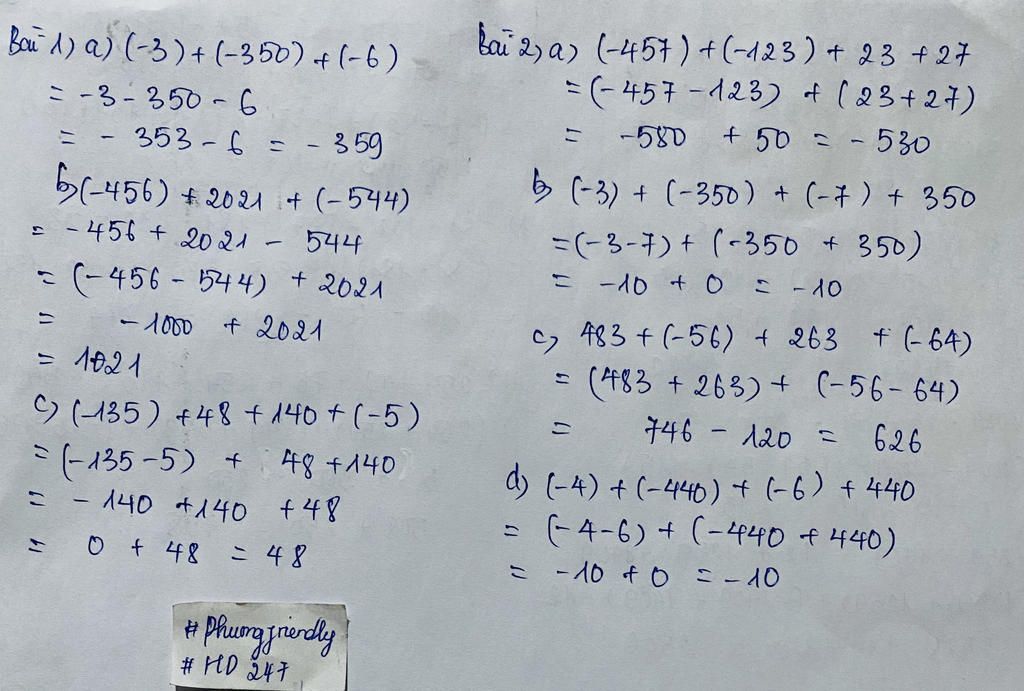 Bài 1) a) (-3) + (-350) + (-6)
= -3 - 350 - 6
= - 353 - 6 = - 359
b) (-456) + 2021 + (-544)
= -456 + 2021 - 544
= (-456 - 544) + 2021
= -1000 + 2021
= 1021
c) (-135) + 48 + 140 + (-5)
= (-135-5) + 48 + 140
= - 140 + 140 + 48
= 0 + 48 = 48
# Phuongfriendly
# HD 247
Bài 2) a) (-457) + (-123) + 23 + 27
= (-457 - 123) + (23+27)
= -580 + 50 = - 530
b) (-3) + (-350) + (-7) + 350
= (-3-7) + (-350 + 350)
= -10 + 0 = -10
c) 483 + (-56) + 263 + (-64)
= (483 + 263) + (-56 - 64)
= 746 - 120 = 626
d) (-4) + (-440) + (-6) + 440
= (-4-6) + (-440 + 440)
= -10 + 0 = -10